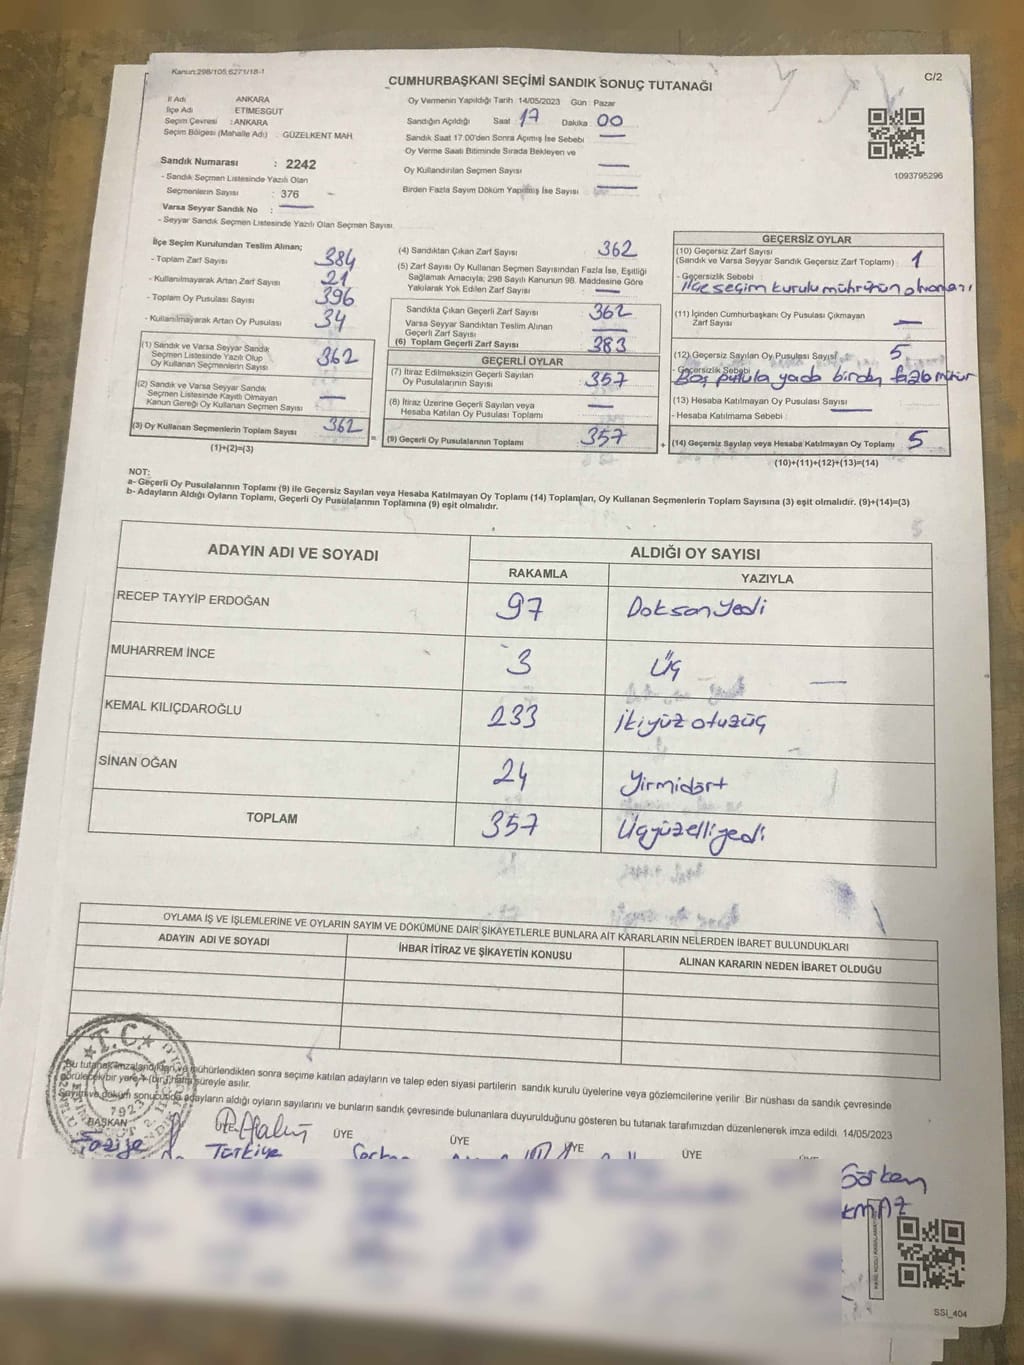 Kanun:298/105,6271/18-1
CUMHURBAŞKANI SEÇİMİ SANDIK SONUÇ TUTANAĞI
C/2
İl Adı ANKARA
İlçe Adı ETİMESGUT
Seçim Çevresi : ANKARA
Seçim Bölgesi (Mahalle Adı) : GÜZELKENT MAH.
Oy Vermenin Yapıldığı Tarih 14/05/2023 Gün Pazar
Sandığın Açıldığı Saat 17 Dakika 00
Sandık Saat 17.00'den Sonra Açımış İse Sebebi —
Oy Verme Saati Bitiminde Sırada Bekleyen ve
Oy Kullandırılan Seçmen Sayısı —
Birden Fazla Sayım Döküm Yapılmış İse Sayısı —
1093795296
Sandık Numarası : 2242
- Sandık Seçmen Listesinde Yazılı Olan
Seçmenlerin Sayısı : 376
Varsa Seyyar Sandık No : —
- Seyyar Sandık Seçmen Listesinde Yazılı Olan Seçmen Sayısı
İlçe Seçim Kurulundan Teslim Alınan;
- Toplam Zarf Sayısı 384
- Kullanılmayarak Artan Zarf Sayısı 21
- Toplam Oy Pusulası Sayısı 396
- Kullanılmayarak Artan Oy Pusulası 34
(1) Sandık ve Varsa Seyyar Sandık
Seçmen Listesinde Yazılı Olup
Oy Kullanan Seçmenlerin Sayısı 362
(2) Sandık ve Varsa Seyyar Sandık
Seçmen Listesinde Kayıtlı Olmayan
Kanun Gereği Oy Kullanan Seçmen Sayısı —
(3) Oy Kullanan Seçmenlerin Toplam Sayısı 362
(1)+(2)=(3)
(4) Sandıktan Çıkan Zarf Sayısı 362
(5) Zarf Sayısı Oy Kullanan Seçmen Sayısından Fazla İse, Eşitliği
Sağlamak Amacıyla; 298 Sayılı Kanunun 98. Maddesine Göre
Yakılarak Yok Edilen Zarf Sayısı —
Sandıkta Çıkan Geçerli Zarf Sayısı 362
Varsa Seyyar Sandıktan Teslim Alınan
Geçerli Zarf Sayısı —
(6) Toplam Geçerli Zarf Sayısı 383
GEÇERLİ OYLAR
(7) İtiraz Edilmeksizin Geçerli Sayılan
Oy Pusulalarının Sayısı 357
(8) İtiraz Üzerine Geçerli Sayılan veya
Hesaba Katılan Oy Pusulası Toplamı —
= (9) Geçerli Oy Pusulalarının Toplamı 357 +
GEÇERSİZ OYLAR
(10) Geçersiz Zarf Sayısı
(Sandık ve Varsa Seyyar Sandık Geçersiz Zarf Toplamı) : 1
- Geçersizlik Sebebi :
ilçe seçim kurulu mührünün olmaması
(11) İçinden Cumhurbaşkanı Oy Pusulası Çıkmayan
Zarf Sayısı —
(12) Geçersiz Sayılan Oy Pusulası Sayısı 5
- Geçersizlik Sebebi
Boş pusula yada birden fazla mühür
(13) Hesaba Katılmayan Oy Pusulası Sayısı —
- Hesaba Katılmama Sebebi :
(14) Geçersiz Sayılan veya Hesaba Katılmayan Oy Toplamı 5
(10)+(11)+(12)+(13)=(14)
NOT:
a- Geçerli Oy Pusulalarının Toplamı (9) ile Geçersiz Sayılan veya Hesaba Katılmayan Oy Toplamı (14) Toplamları, Oy Kullanan Seçmenlerin Toplam Sayısına (3) eşit olmalıdır. (9)+(14)=(3)
b- Adayların Aldığı Oyların Toplamı, Geçerli Oy Pusulalarının Toplamına (9) eşit olmalıdır.
ADAYIN ADI VE SOYADI
ALDIĞI OY SAYISI
RAKAMLA YAZIYLA
RECEP TAYYİP ERDOĞAN 97 Doksanyedi
MUHARREM İNCE 3 Üç —
KEMAL KILIÇDAROĞLU 233 İkiyüz otuzüç
SİNAN OĞAN 24 Yirmidört
TOPLAM 357 Üçyüzelliyedi
OYLAMA İŞ VE İŞLEMLERİNE VE OYLARIN SAYIM VE DÖKÜMÜNE DAİR ŞİKAYETLERLE BUNLARA AİT KARARLARIN NELERDEN İBARET BULUNDUKLARI
ADAYIN ADI VE SOYADI
İHBAR İTİRAZ VE ŞİKAYETİN KONUSU
ALINAN KARARIN NEDEN İBARET OLDUĞU
T.C.
1923
Bu tutanak imzalandıktan ve mühürlendikten sonra seçime katılan adayların ve talep eden siyasi partilerin sandık kurulu üyelerine veya gözlemcilerine verilir. Bir nüshası da sandık çevresinde
görülecek bir yere (bir) hafta süreyle asılır.
Sayım ve döküm sonucunda adayların aldığı oyların sayılarını ve bunların sandık çevresinde bulunanlara duyurulduğunu gösteren bu tutanak tarafımızdan düzenlenerek imza edildi. 14/05/2023
BAŞKAN ÜYE ÜYE ÜYE ÜYE ÜYE
Türkiye
Görkem
SSİ_404